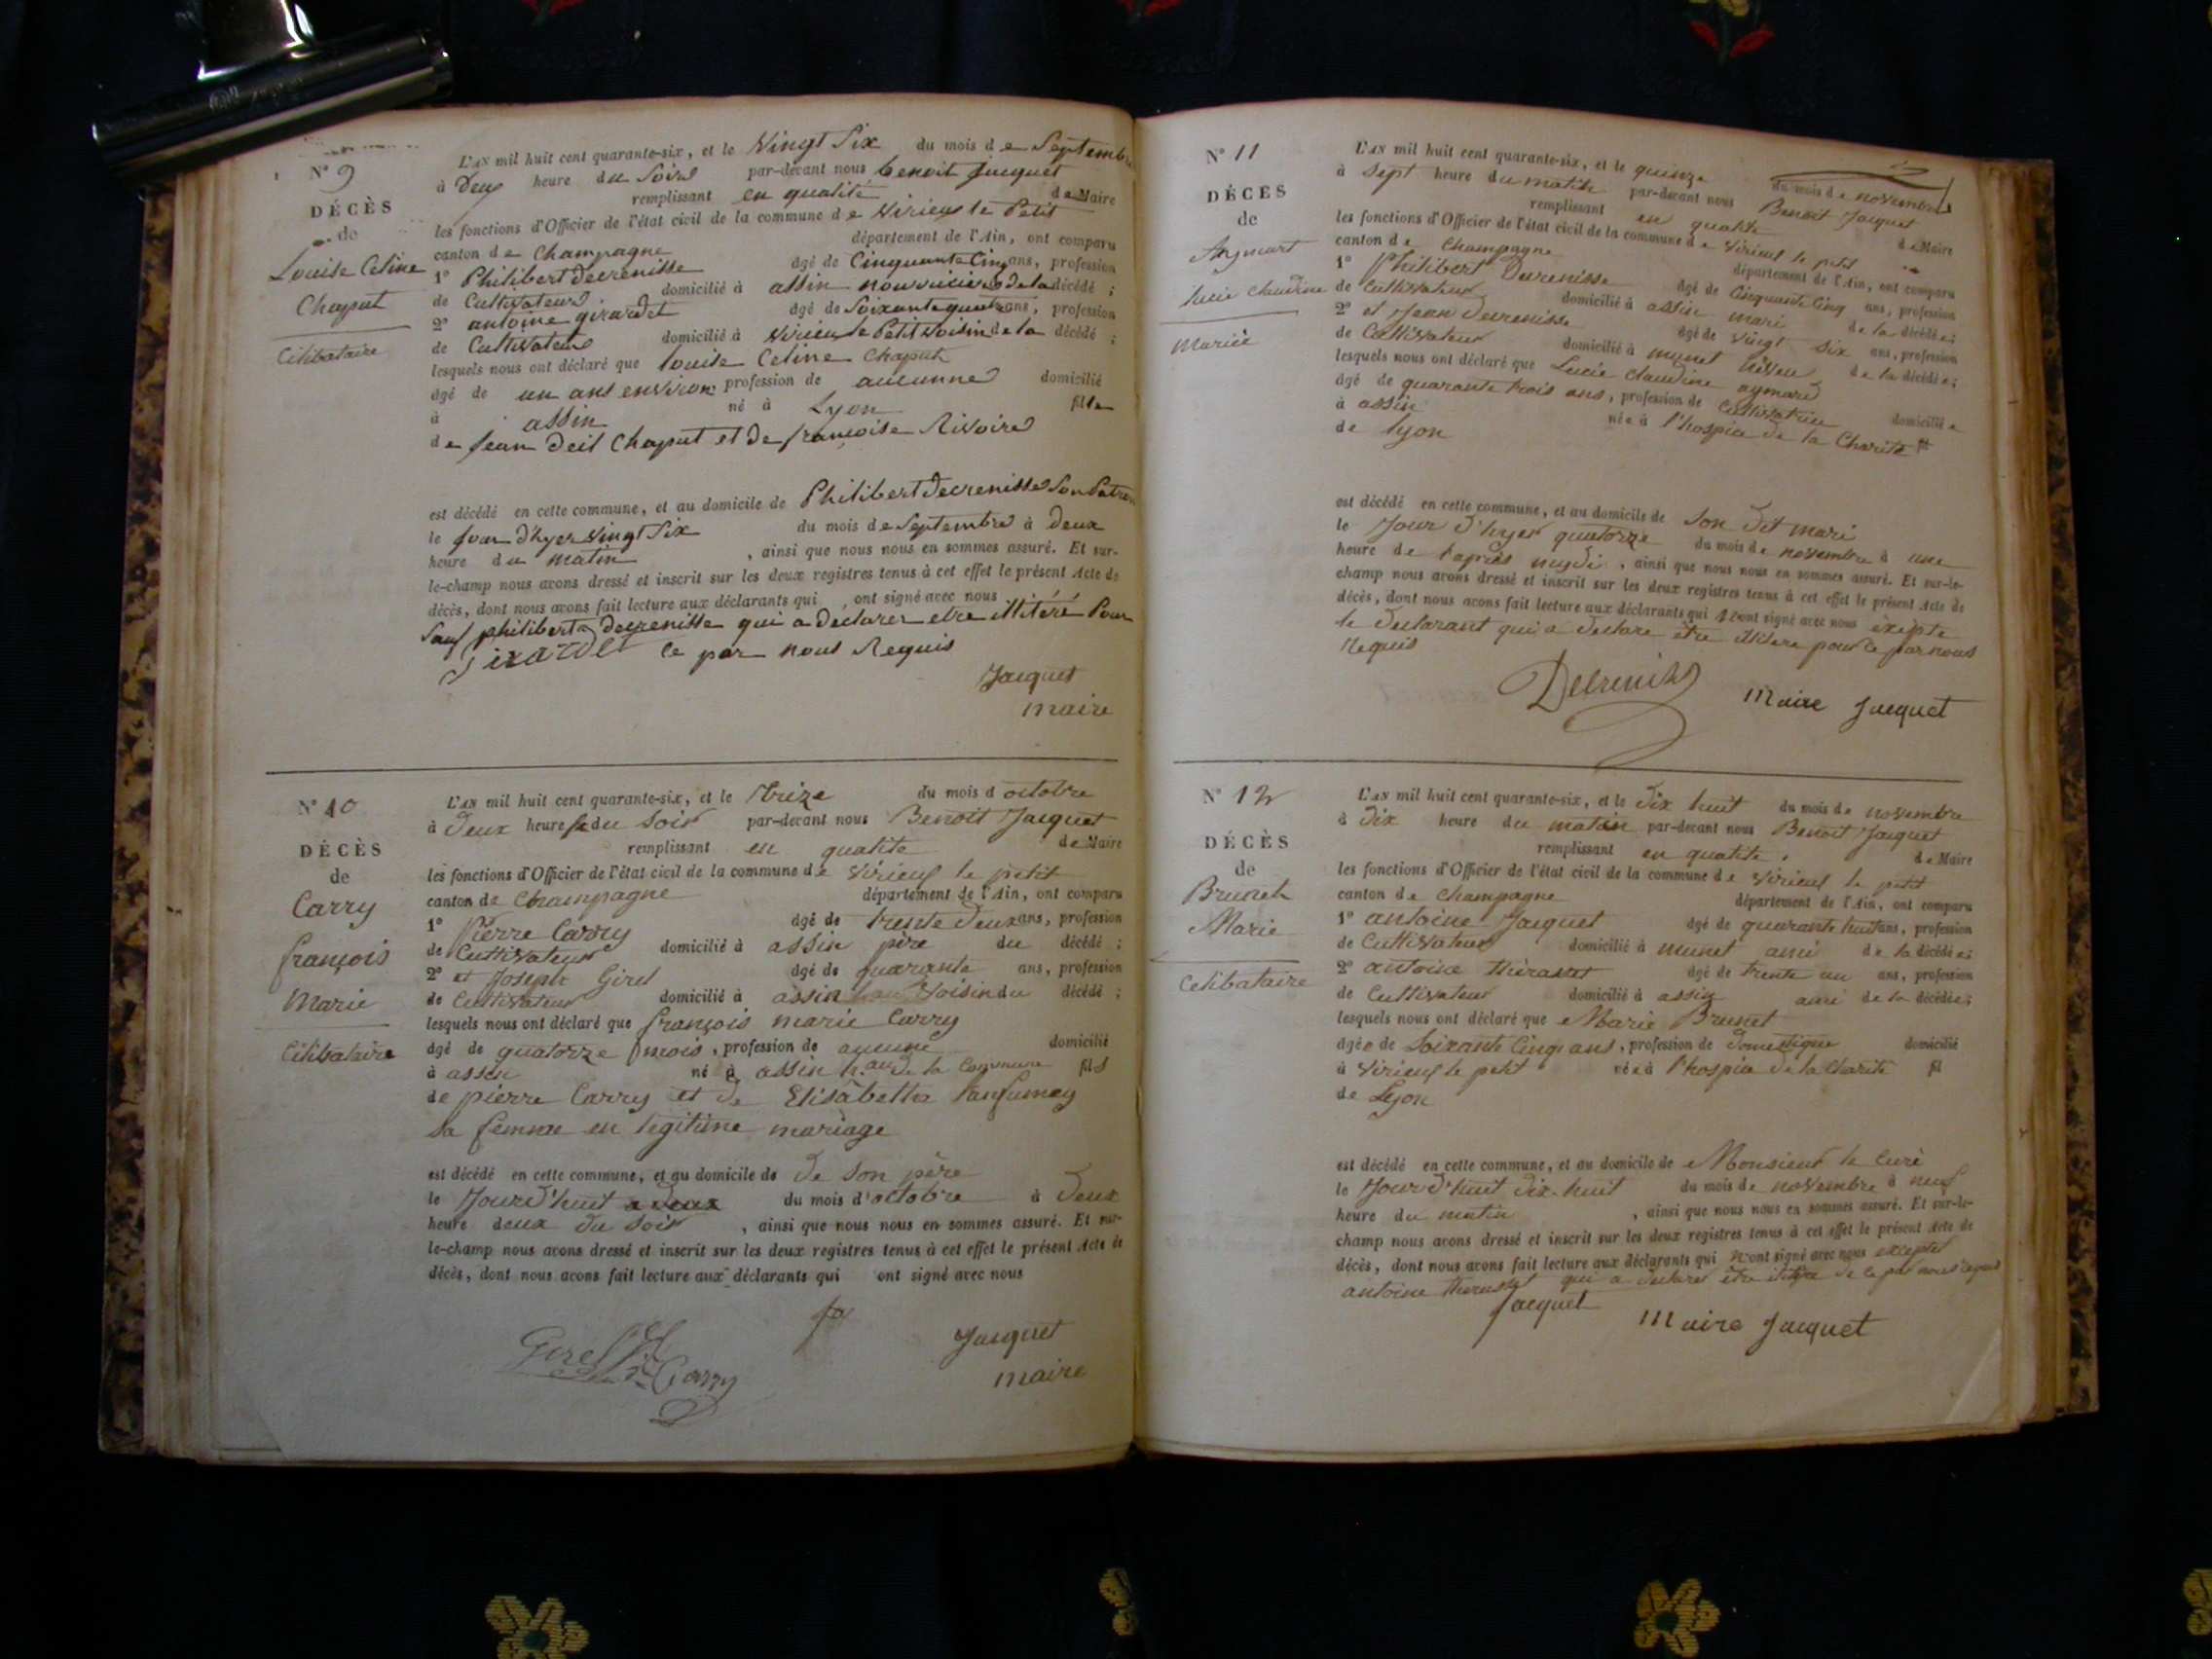 N° 9
DÉCÈS
de
Louise Celine
Chaput
Célibataire
L'AN mil huit cent quarante-six, et le Vingt Six du mois de Septembre
à Deux heure du Soir par-devant nous benoit Jacquet
remplissant en qualité de Maire
les fonctions d'Officier de l'état civil de la commune de Virieux le Petit
canton de Champagne département de l'Ain, ont comparu
1° Philibert Decrenisse âgé de Cinquante Cinq ans, profession
de Cultivateur domicilié à assin nourricier de la décédé ;
2° antoine girardet âgé de Soixante quatre ans, profession
de Cultivateur domicilié à Virieu le Petit Voisin de la décédé ;
lesquels nous ont déclaré que louise Celine Chaput
âgé de un ans environ profession de aucunne domicilié
à assin né à Lyon fille
de Jean Chaput et de françoise Rivoire
est décédé en cette commune, et au domicile de Philibert Decrenisse Son Patron
le Jour d'hyer Vingt Six du mois de Septembre à deux
heure du matin , ainsi que nous nous en sommes assuré. Et sur-
le-champ nous avons dressé et inscrit sur les deux registres tenus à cet effet le présent Acte de
décès, dont nous avons fait lecture aux déclarants qui ont signé avec nous
Sauf philibert decrenisse qui a declarer etre illitéré Pour
Girardet ce par nous Requis
Jacquet
maire
N° 10
DÉCÈS
de
Carry
françois
Marie
Célibataire
L'AN mil huit cent quarante-six, et le treize du mois d octobre
à Deux heure du Soir par-devant nous Benoit Jacquet
remplissant en qualité de Maire
les fonctions d'Officier de l'état civil de la commune de Virieux le petit
canton de Champagne département de l'Ain, ont comparu
1° Pierre Carry âgé de trente Deux ans, profession
de Cultivateur domicilié à assin père du décédé ;
2° et Joseph Girel âgé de quarante ans, profession
de Cultivateur domicilié à assin Voisin du décédé ;
lesquels nous ont déclaré que françois marie Carry
âgé de quatorze mois, profession de aucune domicilié
à assin né à assin h.au de la Commune fils
de pierre Carry et de Elisâbeth Panfumey
Sa femme en légitime mariage
est décédé en cette commune, et au domicile de De Son père
le Jour D'huit a Deux du mois d'octobre à Deux
heure deux du Soir , ainsi que nous nous en sommes assuré. Et sur-
le-champ nous avons dressé et inscrit sur les deux registres tenus à cet effet le présent Acte de
décès, dont nous avons fait lecture aux déclarants qui ont signé avec nous
Girel Carry
Jacquet
maire
N° 11
DÉCÈS
de
lucie Claudine
Mariée
L'AN mil huit cent quarante-six, et le quinze du mois de novembre
à Sept heure du matin par-devant nous Benoit Jacquet
remplissant en qualité de Maire
les fonctions d'Officier de l'état civil de la commune de Virieux le petit
canton de Champagne département de l'Ain, ont comparu
1° Philibert Decrenisse âgé de Cinquante Cinq ans, profession
de Cultivateur domicilié à assin mari de la décédée ;
2° et Jean Decrenisse âgé de Vingt Six ans, profession
de Cultivateur domicilié à munet Néveu de la décédée ;
lesquels nous ont déclaré que Lucie Claudine aymard
âgé de quarante trois ans, profession de Cultivatrice domiciliée
à assin née à l'hospice de la Charité fil
de lyon
est décédé en cette commune, et au domicile de Son Dit mari
le Jour D'hyer quatorze du mois de novembre à une
heure de l'après mydi , ainsi que nous nous en sommes assuré. Et sur-le-
champ nous avons dressé et inscrit sur les deux registres tenus à cet effet le présent Acte de
décès, dont nous avons fait lecture aux déclarants qui ont signé avec nous exepté
le Declarant qui a Declare être illitere pour ce par nous
Requis
Decrenisse
Maire Jacquet
N° 12
DÉCÈS
de
Brunet
Marie
Celibataire
L'AN mil huit cent quarante-six, et le Dix huit du mois de novembre
à Dix heure du matin par-devant nous Benoit Jacquet
remplissant en qualité de Maire
les fonctions d'Officier de l'état civil de la commune de Virieux le petit
canton de Champagne département de l'Ain, ont comparu
1° antoine Jacquet âgé de quarante huit ans, profession
de Cultivateur domicilié à munet ami de la décédée ;
2° antoine âgé de trente un ans, profession
de Cultivateur domicilié à assin ami de la décédée ;
lesquels nous ont déclaré que Marie Brunet
âgée de Soixante Cinq ans, profession de Domestique domicilié
à Virieux le petit née à l'hospice de la Charité fil
de Lyon
est décédé en cette commune, et au domicile de Monsieur le Curé
le Jour D'huit Dix-huit du mois de novembre à neuf
heure du matin , ainsi que nous nous en sommes assuré. Et sur-le-
champ nous avons dressé et inscrit sur les deux registres tenus à cet effet le présent Acte de
décès, dont nous avons fait lecture aux déclarants qui ont signé avec nous excepté
antoine qui a Declarer être de ce par nous requis
Jacquet
Maire Jacquet